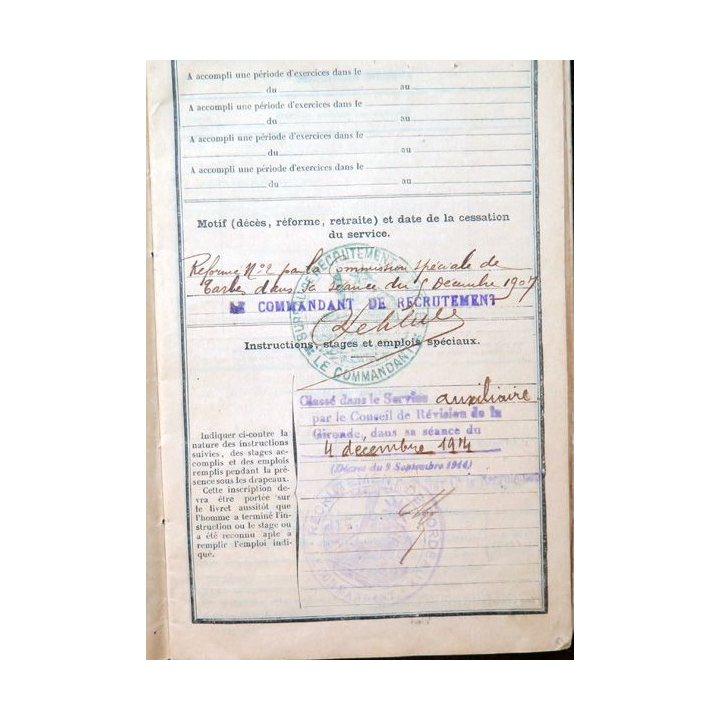 A accompli une période d'exercices dans le
du au
A accompli une période d'exercices dans le
du au
A accompli une période d'exercices dans le
du au
A accompli une période d'exercices dans le
du au
Motif (décès, réforme, retraite) et date de la cessation
du service.
Réforme N°2 par la Commission spéciale de
Tarbes dans sa séance du 5 Décembre 1907
LE COMMANDANT DE RECRUTEMENT
BUREAU DE RECRUTEMENT
LE COMMANDANT
Instructions, stages et emplois spéciaux.
Classé dans le Service auxiliaire
par le Conseil de Révision de la
Gironde, dans sa séance du
4 décembre 1914
(Décret du 9 Septembre 1914)
Indiquer ci-contre la
nature des instructions
suivies, des stages ac-
complis et des emplois
remplis pendant la pré-
sence sous les drapeaux.
Cette inscription de-
vra être portée sur
le livret aussitôt que
l'homme a terminé l'in-
struction ou le stage ou
a été reconnu apte à
remplir l'emploi indi-
qué.
RECRUTEMENT DE BORDEAUX